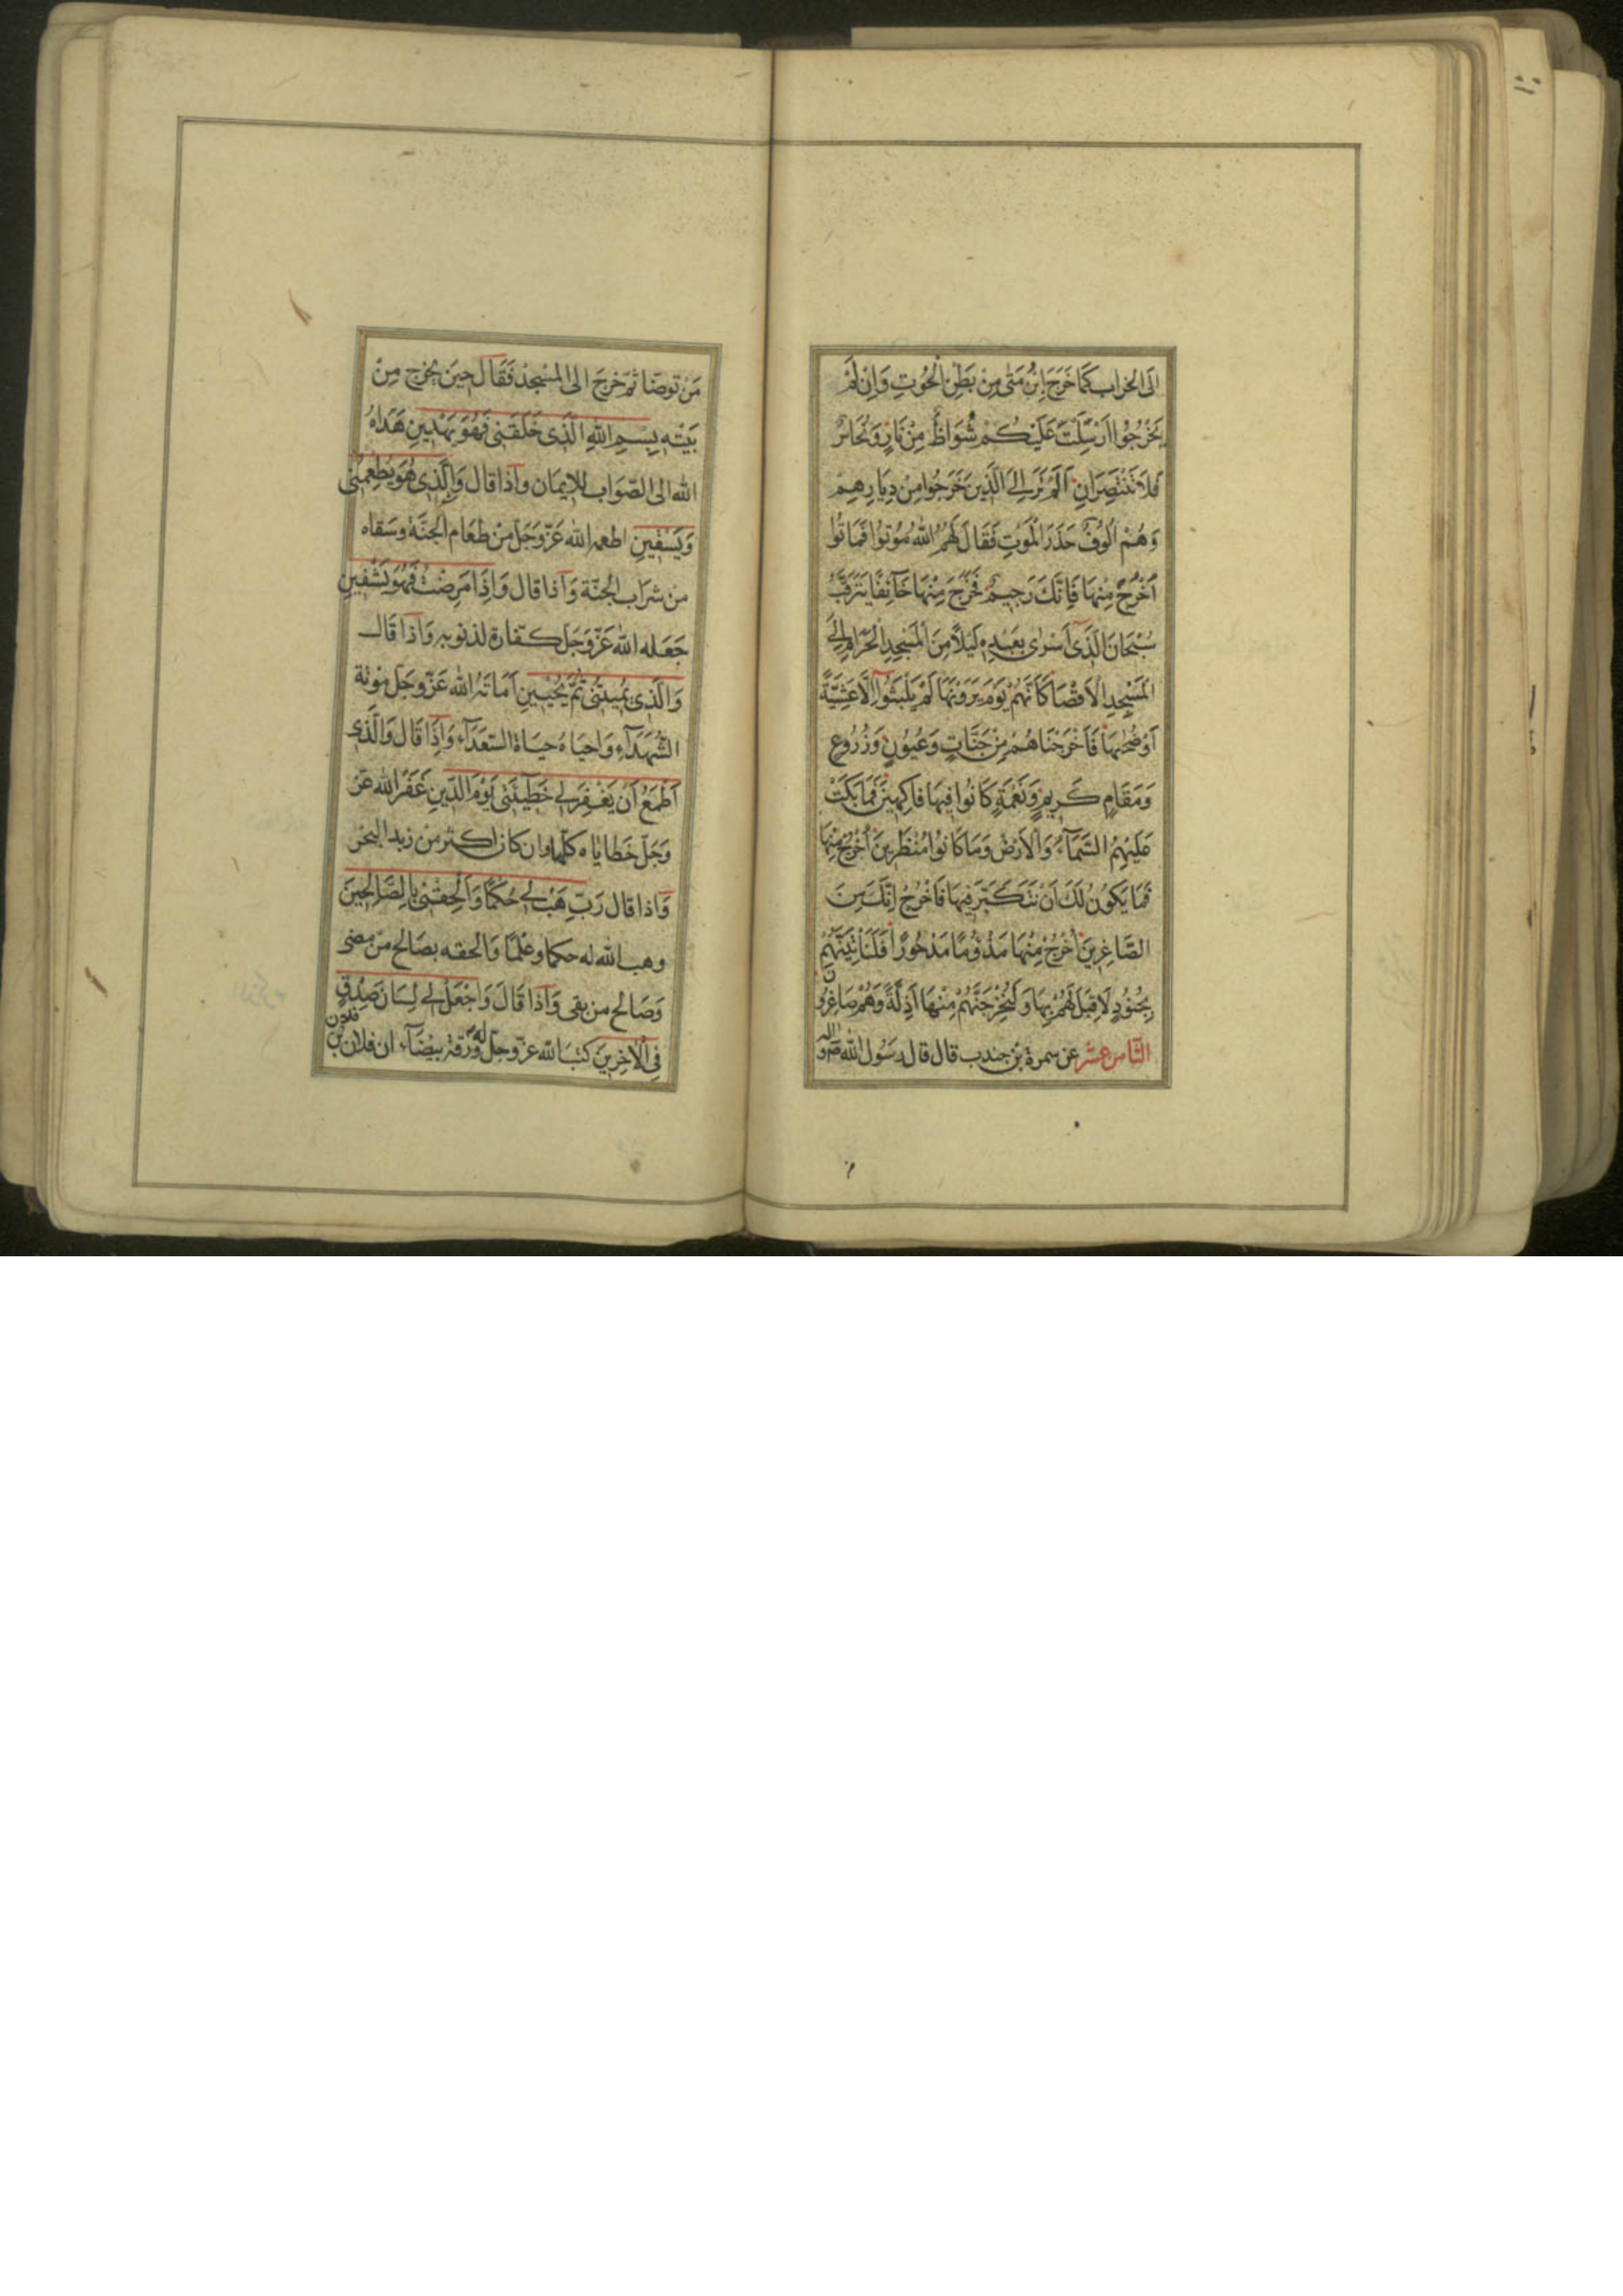 اِلَی الخراب کَمَا خَرَجَ اِبْنُ مَتّٰی مِنْ بَطْنِ الْحُوْتِ وَاِنْ لَمْ
یَخْرُجُوْا اَرْسَلْتُ عَلَیْکُمْ شُوَاظٌ مِنْ نَارٍ وَنُحَاسٌ
فَلَا تَنْتَصِرَانِ اَلَمْ تَرَ اِلَی الَّذِیْنَ خَرَجُوا مِنْ دِیَارِهِمْ
وَهُمْ اُلُوْفٌ حَذَرَ الْمَوْتِ فَقَالَ لَهُمُ اللّٰهُ مُوْتُوْا فَمَاتُوْا
اُخْرُجْ مِنْهَا فَاِنَّكَ رَجِیمٌ فَخَرَجَ مِنْهَا خَآئِفًا یَتَرَقَّبُ
سُبْحَانَ الَّذِیْ اَسْرٰی بِعَبْدِهٖ لَیْلًا مِنَ الْمَسْجِدِ الْحَرَامِ اِلَی
الْمَسْجِدِ الْاَقْصَا کَاَنَّهُمْ یَوْمَ یَرَوْنَهَا لَمْ یَلْبَثُوْا اِلَّا عَشِیَّةً
اَوْ ضُحٰیهَا فَاَخْرَجْنَاهُمْ مِنْ جَنَّاتٍ وَعُیُوْنٍ وَزُرُوْعٍ
وَمَقَامٍ کَرِیْمٍ وَنَعْمَةٍ کَانُوْا فِیهَا فَاکِهِیْنَ فَمَا بَکَتْ
عَلَیْهِمُ السَّمَآءُ وَالْاَرْضُ وَمَا کَانُوْا مُنْظَرِیْنَ اُخْرُجْ مِنْهَا
فَمَا یَکُوْنُ لَكَ اَنْ تَتَکَبَّرَ فِیْهَا فَاخْرُجْ اِنَّكَ مِنَ
الصَّاغِرِیْنَ اُخْرُجْ مِنْهَا مَذْؤُمًا مَدْحُوْرًا فَلَنَأْتِیَنَّهُمْ
بِجُنُوْدٍ لَا قِبَلَ لَهُمْ بِهَا وَلَنُخْرِجَنَّهُمْ مِنْهَا اَذِلَّةً وَهُمْ صَاغِرُوْنَ
الثّامن عشر عن سمرة بن جندب قال قال رسول الله
مَنْ توضّا ثمّ خَرَجَ الی المسْجِد فَقَالَ حِیْنَ یَخْرج مِنْ
بَیْتِه بِسْمِ اللّٰهِ الَّذِیْ خَلَقَنِیْ فَهُوَ یَهْدِیْنِ هَدَاهُ
الله الی الصّوَاب للایمَان وَاذا قال وَالَّذِیْ هُوَ یُطْعِمُنِیْ
وَیَسْقِیْنِ اطعمه الله عَزّوَجَلّ مِنْ طعَام الْجَنّة وسَقاه
من شرَاب الْجنّة وَاذا قال وَاِذَا مَرِضْتُ فَهُوَ یَشْفِیْنِ
جَعَله الله عَزّوَجَلّ کفّارة لذنوبه وَاذَا قَال
وَالَّذِیْ یُمِیْتُنِیْ ثُمَّ یُحْیِیْنِ اَمَاتَهُ الله عَزّوجَلّ مَوْتة
الشّهَدَآءِ وَاحیَاهُ حیَاة السّعَدَآء وَاِذَا قَال وَالَّذِیْ
اَطْمَعُ اَنْ یَغْفِرَ لِی خَطِیْئَتِیْ یَوْمَ الدِّیْنِ غَفَرَ الله عَزّ
وَجَلّ خَطایاه کلّها وان کان اکثر من زبد البحر
وَاذا قال رَبِّ هَبْ لِی حُکْمًا وَاَلْحِقْنِیْ بِالصَّالِحِیْنَ
وهب الله له حکما وعْلمًا وَالحقه بصَالح من مضی
وَصَالح من بقی وَاذَا قَالَ وَاجْعَلْ لِی لِسَانَ صِدْقٍ
فِی الْاٰخِرِیْنَ کتبَ الله عزّوجلّ له ورقة بیْضَآء ان فلان بن فلان